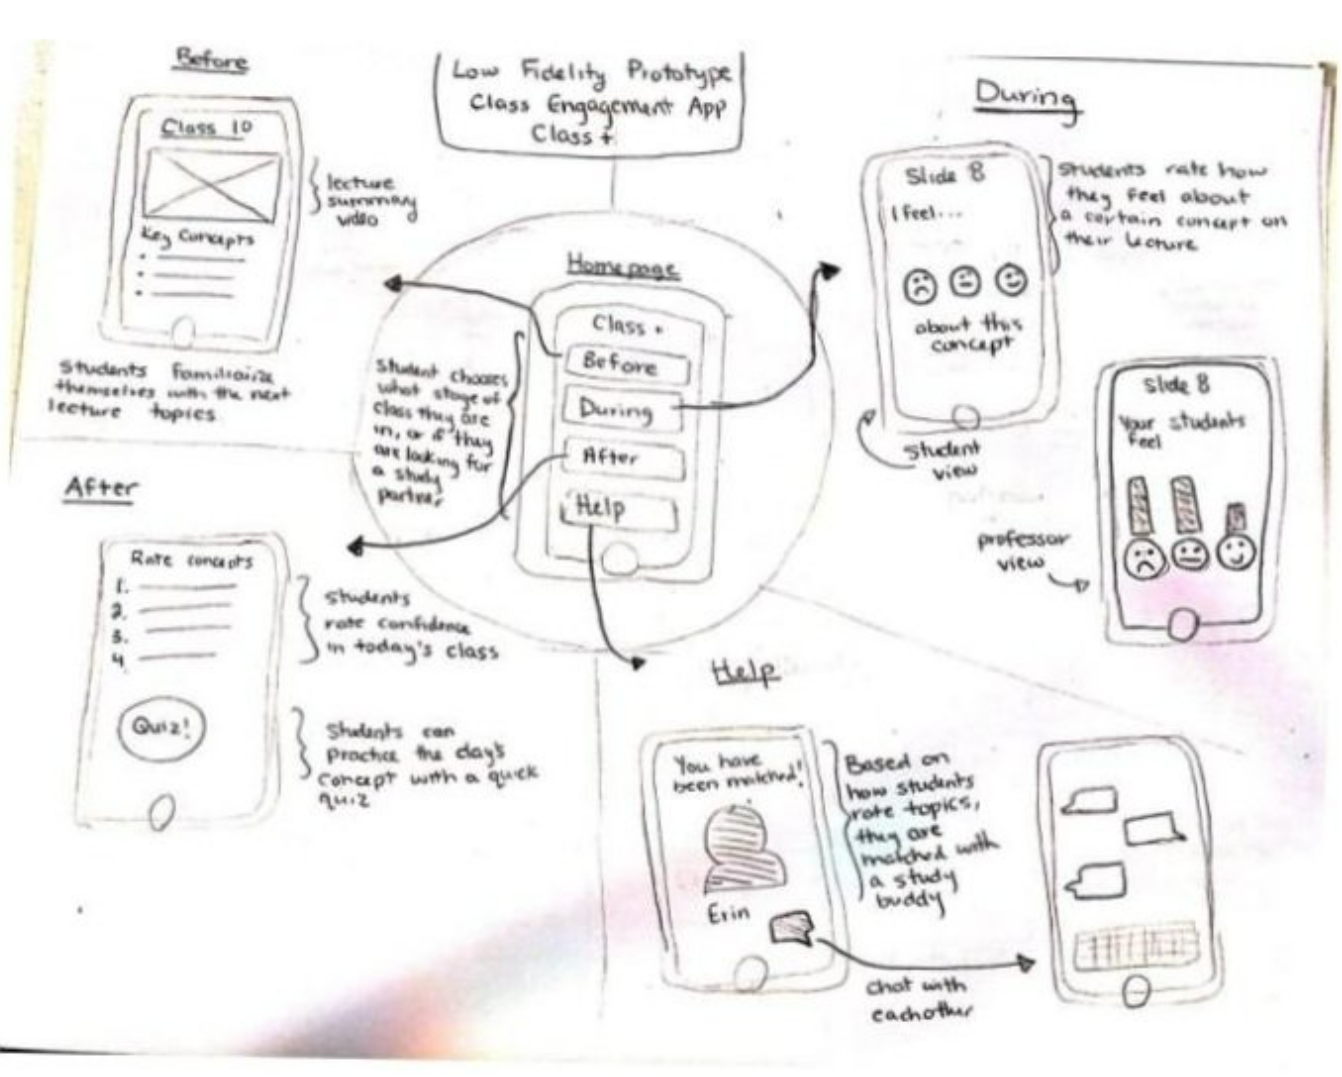 Low Fidelity Prototype
Class Engagement App
Class +
Before
Class 10
Key Concepts
lecture
summary
video
Students familiarize
themselves with the next
lecture topics
Homepage
Class +
Before
During
After
Help
Student chooses
what stage of
class they are
in, or if they
are looking for
a study
partner
During
Slide 8
I feel...
about this
concept
Students rate how
they feel about
a certain concept on
their lecture
student
view
Slide 8
Your students
feel
professor
view
After
Rate concepts
1.
2.
3.
4.
Quiz!
Students
rate confidence
in today's class
Students can
practice the day's
concept with a quick
quiz
Help
You have
been matched!
Erin
Based on
how students
rate topics,
they are
matched with
a study
buddy
chat with
eachother